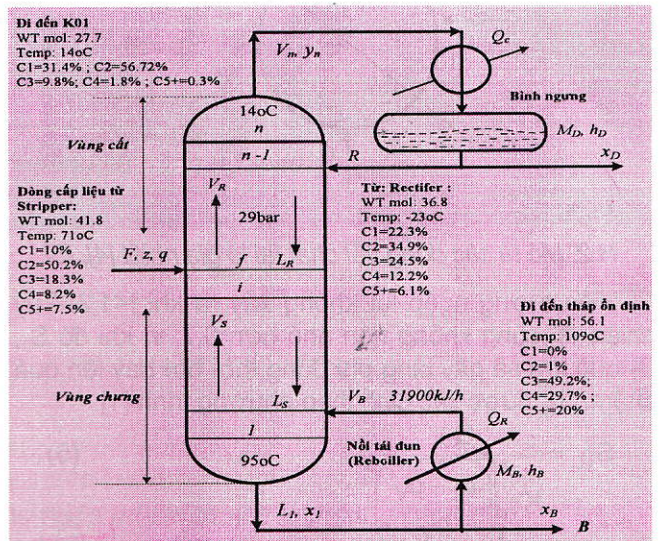 Đi đến K01
WT mol: 27.7
Temp: 14oC
C1=31.4% ; C2=56.72%
C3=9.8%; C4=1.8% ; C5+=0.3%
Vn, yn
Qc
Bình ngưng
14oC
n
MD, hD
Vùng cất
n -1
R
xD
Dòng cấp liệu từ
Stripper:
WT mol: 41.8
Temp: 71oC
C1=10%
C2=50.2%
C3=18.3%
C4=8.2%
C5+=7.5%
VR
29bar
LR
F, z, q
f
i
Từ: Rectifer :
WT mol: 36.8
Temp: -23oC
C1=22.3%
C2=34.9%
C3=24.5%
C4=12.2%
C5+=6.1%
Đi đến tháp ổn định
WT mol: 56.1
Temp: 109oC
C1=0%
C2=1%
C3=49.2%;
C4=29.7% ;
C5+=20%
VS
LS
Vùng chưng
VB 31900kJ/h
1
95oC
QR
Nồi tái đun
(Reboiller)
MB, hB
L1, x1
xB
B